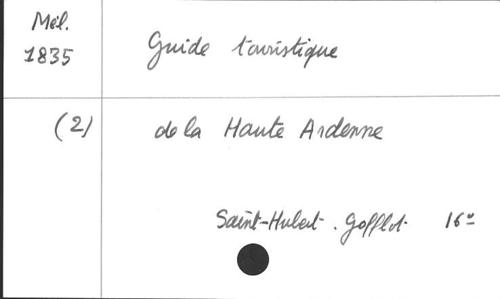 Mél.
1835
Guide touristique
(2)
de la Haute Ardenne
Saint-Hubert. Gofflot 16°